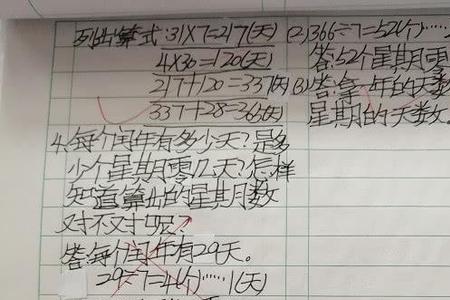 列出算式:31×7=217(天)
4×30=120(天)
217+120=337(天)
337+28=365(天)
4.每个闰年有多少天?是多
少个星期零几天?怎样
知道算出的星期数
对不对呢?
答:每个闰年有29天。
29÷7=4(个)……1(天)
(2)366÷7=52(个)……
答:52个星期零
(3)答:拿一年的天数
星期的天数。